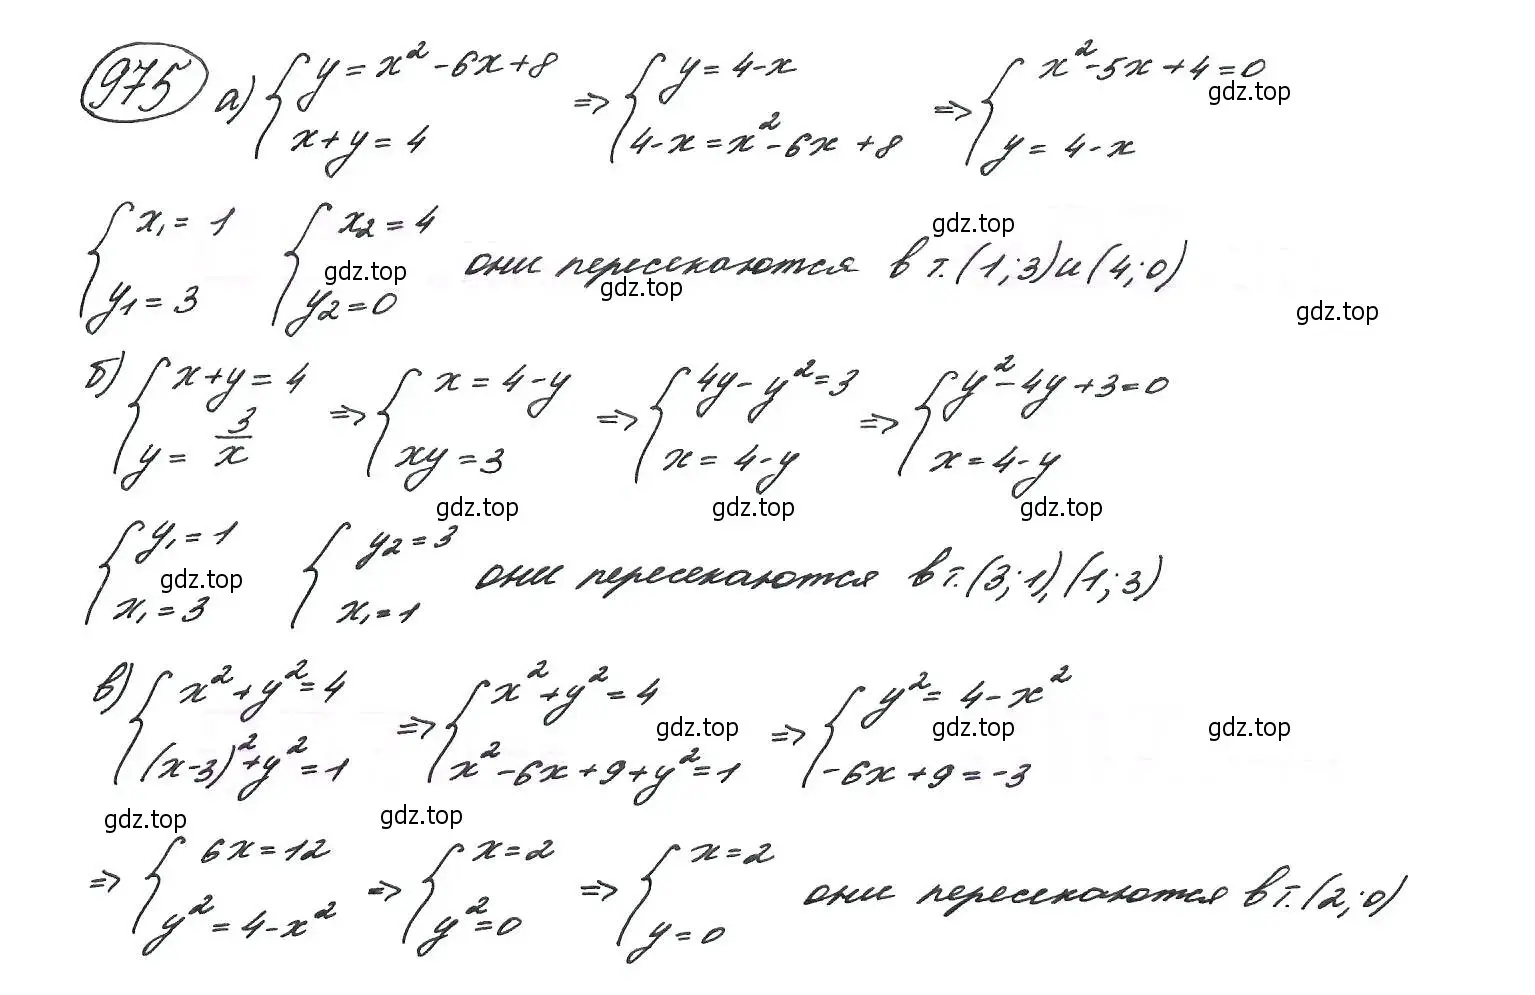 975 а) { y = x² - 6x + 8 ; x + y = 4 => { y = 4 - x ; 4 - x = x² - 6x + 8 => { x² - 5x + 4 = 0 ; y = 4 - x
gdz.top
{ x₁ = 1 ; y₁ = 3 { x₂ = 4 ; y₂ = 0 они пересекаются в т. (1; 3) и (4; 0)
gdz.top gdz.top gdz.top gdz.top
б) { x + y = 4 ; y = 3/x => { x = 4 - y ; xy = 3 => { 4y - y² = 3 ; x = 4 - y => { y² - 4y + 3 = 0 ; x = 4 - y
gdz.top gdz.top gdz.top
{ y₁ = 1 ; x₁ = 3 { y₂ = 3 ; x₁ = 1 они пересекаются в т. (3; 1), (1; 3)
gdz.top
в) { x² + y² = 4 ; (x - 3)² + y² = 1 => { x² + y² = 4 ; x² - 6x + 9 + y² = 1 => { y² = 4 - x² ; -6x + 9 = -3
gdz.top gdz.top gdz.top
gdz.top gdz.top
=> { 6x = 12 ; y² = 4 - x² => { x = 2 ; y² = 0 => { x = 2 ; y = 0 они пересекаются в т. (2; 0)